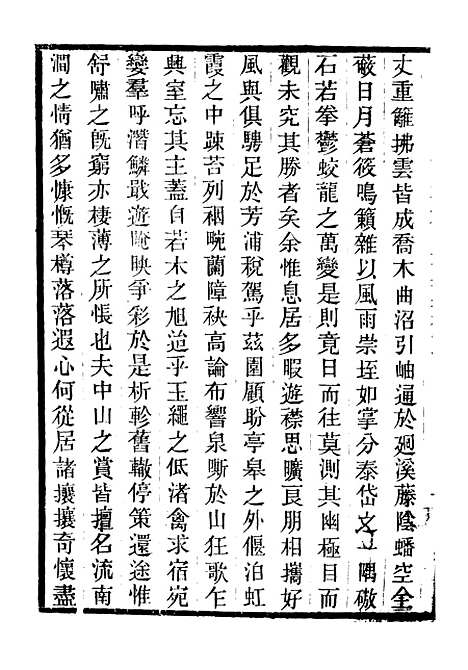 丈重籬拂雲皆成喬木曲沼引岫逼於廻溪藤陰蟠空全
蔽日月蒼筱鳴籟雜以風雨崇垤如掌分泰岱之一隅礉
石若拳鬱蛟龍之萬變是則竟日而往莫測其幽極目而
觀未究其勝者矣余惟息居多暇遊襟思曠良朋相攜好
風與俱騁足於芳浦稅駕乎茲圍顧盼亭臯之外偃泊虹
霞之中疎苔列裀晼蘭障袂高論布響泉嘶於山狂歌乍
興室忘其主蓋自若木之旭迨乎玉繩之低渚禽求宿宛
變羣呼潛鱗戢遊晻映爭彩於是析軫舊轍停策還途惟
舒嘯之旣窮亦棲薄之所悵也夫中山之賞皆擅名流南
澗之情猶多慷慨琴樽落落遐心何從居諸攘攘奇懷盡